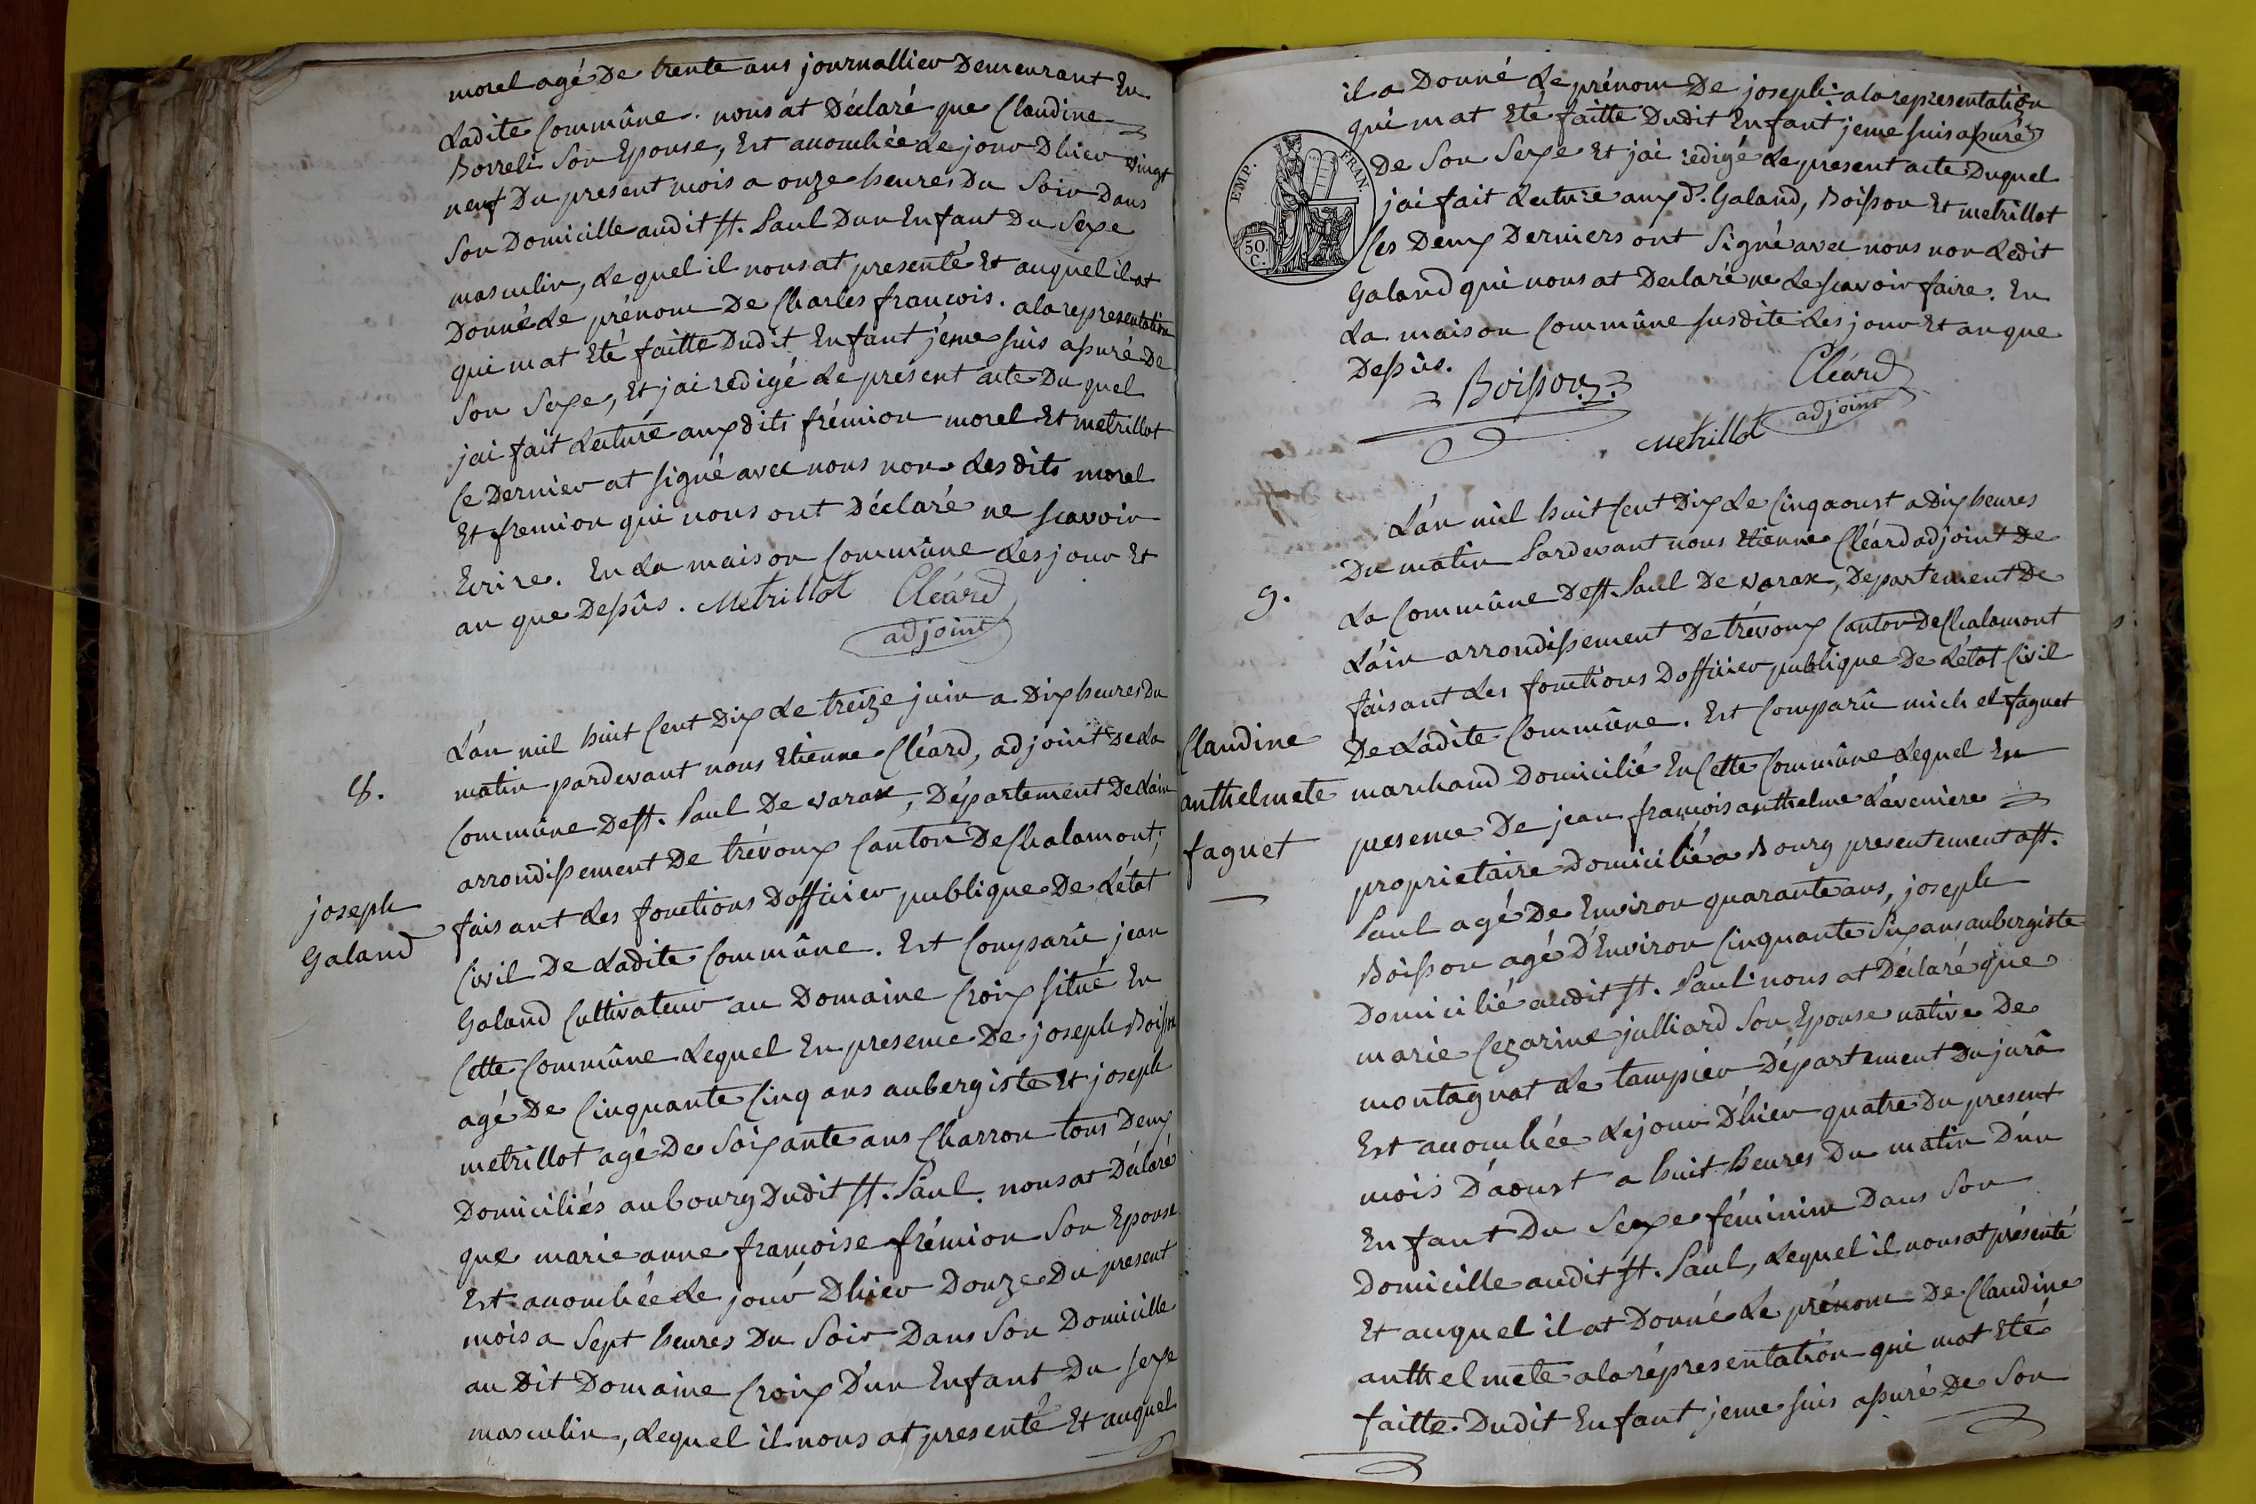 morel agé De trente ans journallier Demeurant En
Ladite Commûne. nous at Déclaré que Claudine
Borreli Son Epouse, Est accouchée Le jour Dhier vingt
neuf Du present mois a onze heures Du Soir Dans
Son Domicille audit St. Paul Dun Enfant Du Sexe
masculin, Lequel il nous at presenté Et auquel il at
Donné Le prénom De Charles françois. ala representation
qui mat Eté faitte Dudit Enfant jéme suis assuré De
Son Sexe, Et jai redigé Le present acte Du quel
jai fait Lecture auxdits frémion morel Et metrillot
Ce Dernier at signé avec nous non Lesdits morel
Et fremion qui nous ont Déclaré ne scavoir
Ecrire. En La maison Commûne Les jour Et
an que Dessûs. Metrillot Cléard
adjoint
8.
Joseph
Galand
L'an mil huit Cent Dix Le treize juin a Dix heures Du
matin pardevant nous Etienne Cléard, adjoint De La
Commûne De St. Paul De varax, Département De Lain
arrondissement De trévoux Canton De Chalamont,
faisant Les fonctions Dofficier publique De Létat
Civil De Ladite Commûne. Est Comparû jean
Galand Cultivateur au Domaine Croix situé En
Cette Commûne Lequel En presence De joseph Boisson
agé De Cinquante Cinq ans aubergiste Et joseph
metrillot agé De Soixante ans Charron tous Deux
Domiciliés au bourg Dudit St. Paul. nous at Déclaré
que marie anne françoise frémion Son Epouse
Est accouchée Le jour Dhier Douze Du present
mois a Sept heures Du Soir Dans Son Domicille
au Dit Domaine Croix D'un Enfant Du sexe
masculin, Lequel il nous at presenté Et auquel
il a Donné Le prénom De joseph. ala representation
qui mat Eté faitte Dudit Enfant jeme suis assuré
De Son Sexe Et jai redigé Le present acte Duquel
jai fait Lecture aux d. Galand, Boisson Et metrillot
Ces Deux Derniers ont Signé avec nous non Ledit
Galand qui nous at Declaré ne Le scavoir faire. En
La maison Commûne susdite Les jour Et an que
Dessûs.
EMP. FRAN.
50.
C.
Boisson
Cléard
adjoint
Metrillot
9.
Claudine
anthelmete
faguet
L'an mil huit Cent Dix Le Cinq aoust a Dix heures
Du matin Pardevant nous Etienne Cléard adjoint De
La Commûne De St. Paul De varax, Departement De
L'ain arrondissement De trévoux Canton De Chalamont
faisant Les fonctions Dofficier publique De Létat Civil
De Ladite Commûne. Est Comparû michel faguet
marchand Domicilié En Cette Commûne Lequel En
presence De jean françois anthelme Lavenière
proprietaire Domicilié a Bourg presentement a St.
Paul agé De Environ quarante ans, joseph
Boisson agé D'Environ Cinquante Six ans aubergiste
Domicilié audit St. Paul nous at Déclaré que
marie Cezarine julliard Son Epouse native De
montagnat Le tampier Département Du jurâ
Est accouchée Le jour D'hier quatre Du present
mois D'aoust a huit heures Du matin D'un
Enfant Du Sexe féminin Dans Son
Domicille audit St. Paul, Lequel il nous at présenté
Et auquel il at Donné Le prénom De Claudine
anthelmete ala réprésentation qui mat Eté
faitte Dudit Enfant jeme suis assuré De Son